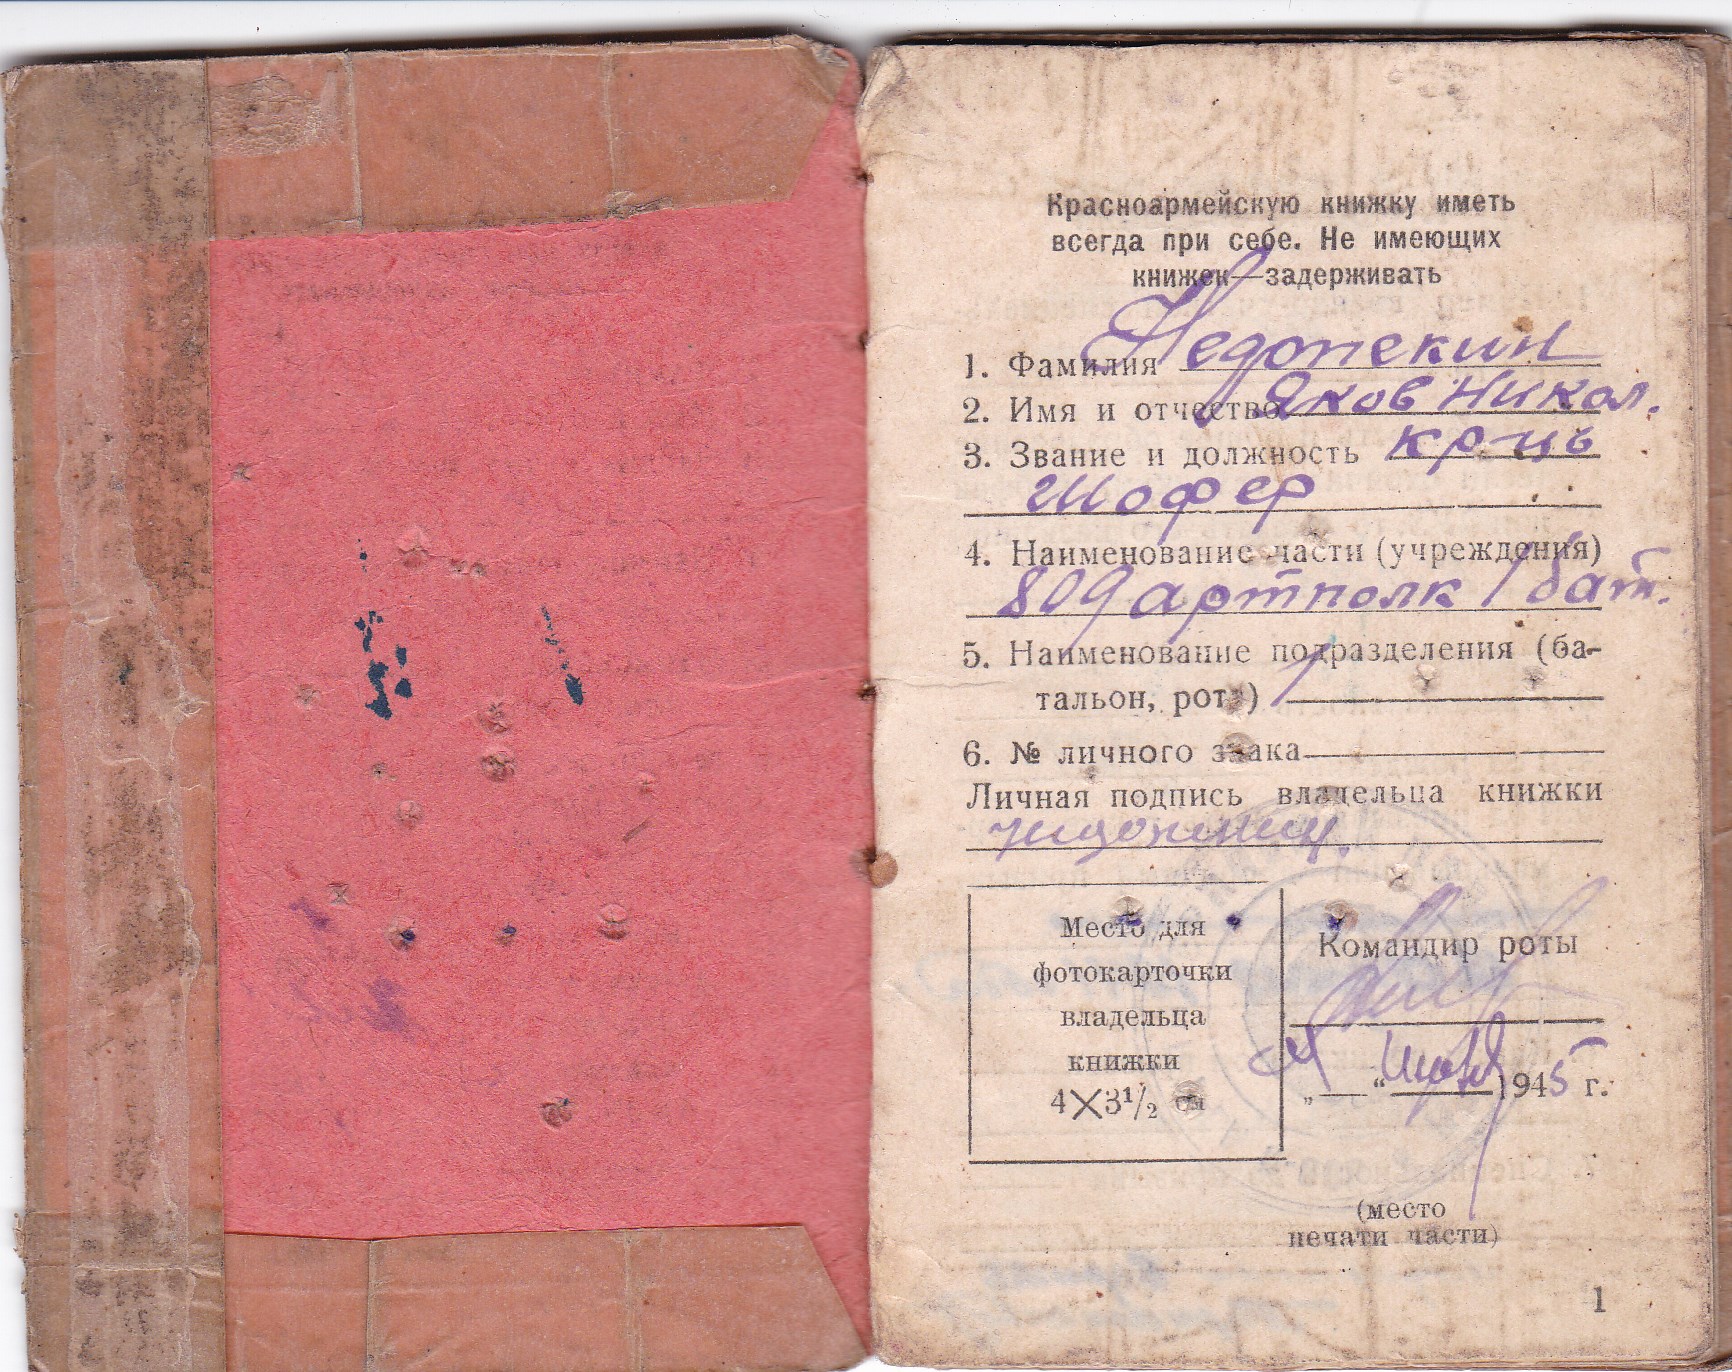 Красноармейскую книжку иметь
всегда при себе. Не имеющих
книжек—задерживать
1. Фамилия Недопекин
2. Имя и отчество Яков Никол.
3. Звание и должность кр-ць
шофер
4. Наименование части (учреждения)
809 артполк 1 бат.
5. Наименование подразделения (ба-
тальон, рота) 1
6. № личного знака
Личная подпись владельца книжки
Место для
фотокарточки
владельца
книжки
4×3½ см
Командир роты
„ “ 1945 г.
(место
печати части)
1